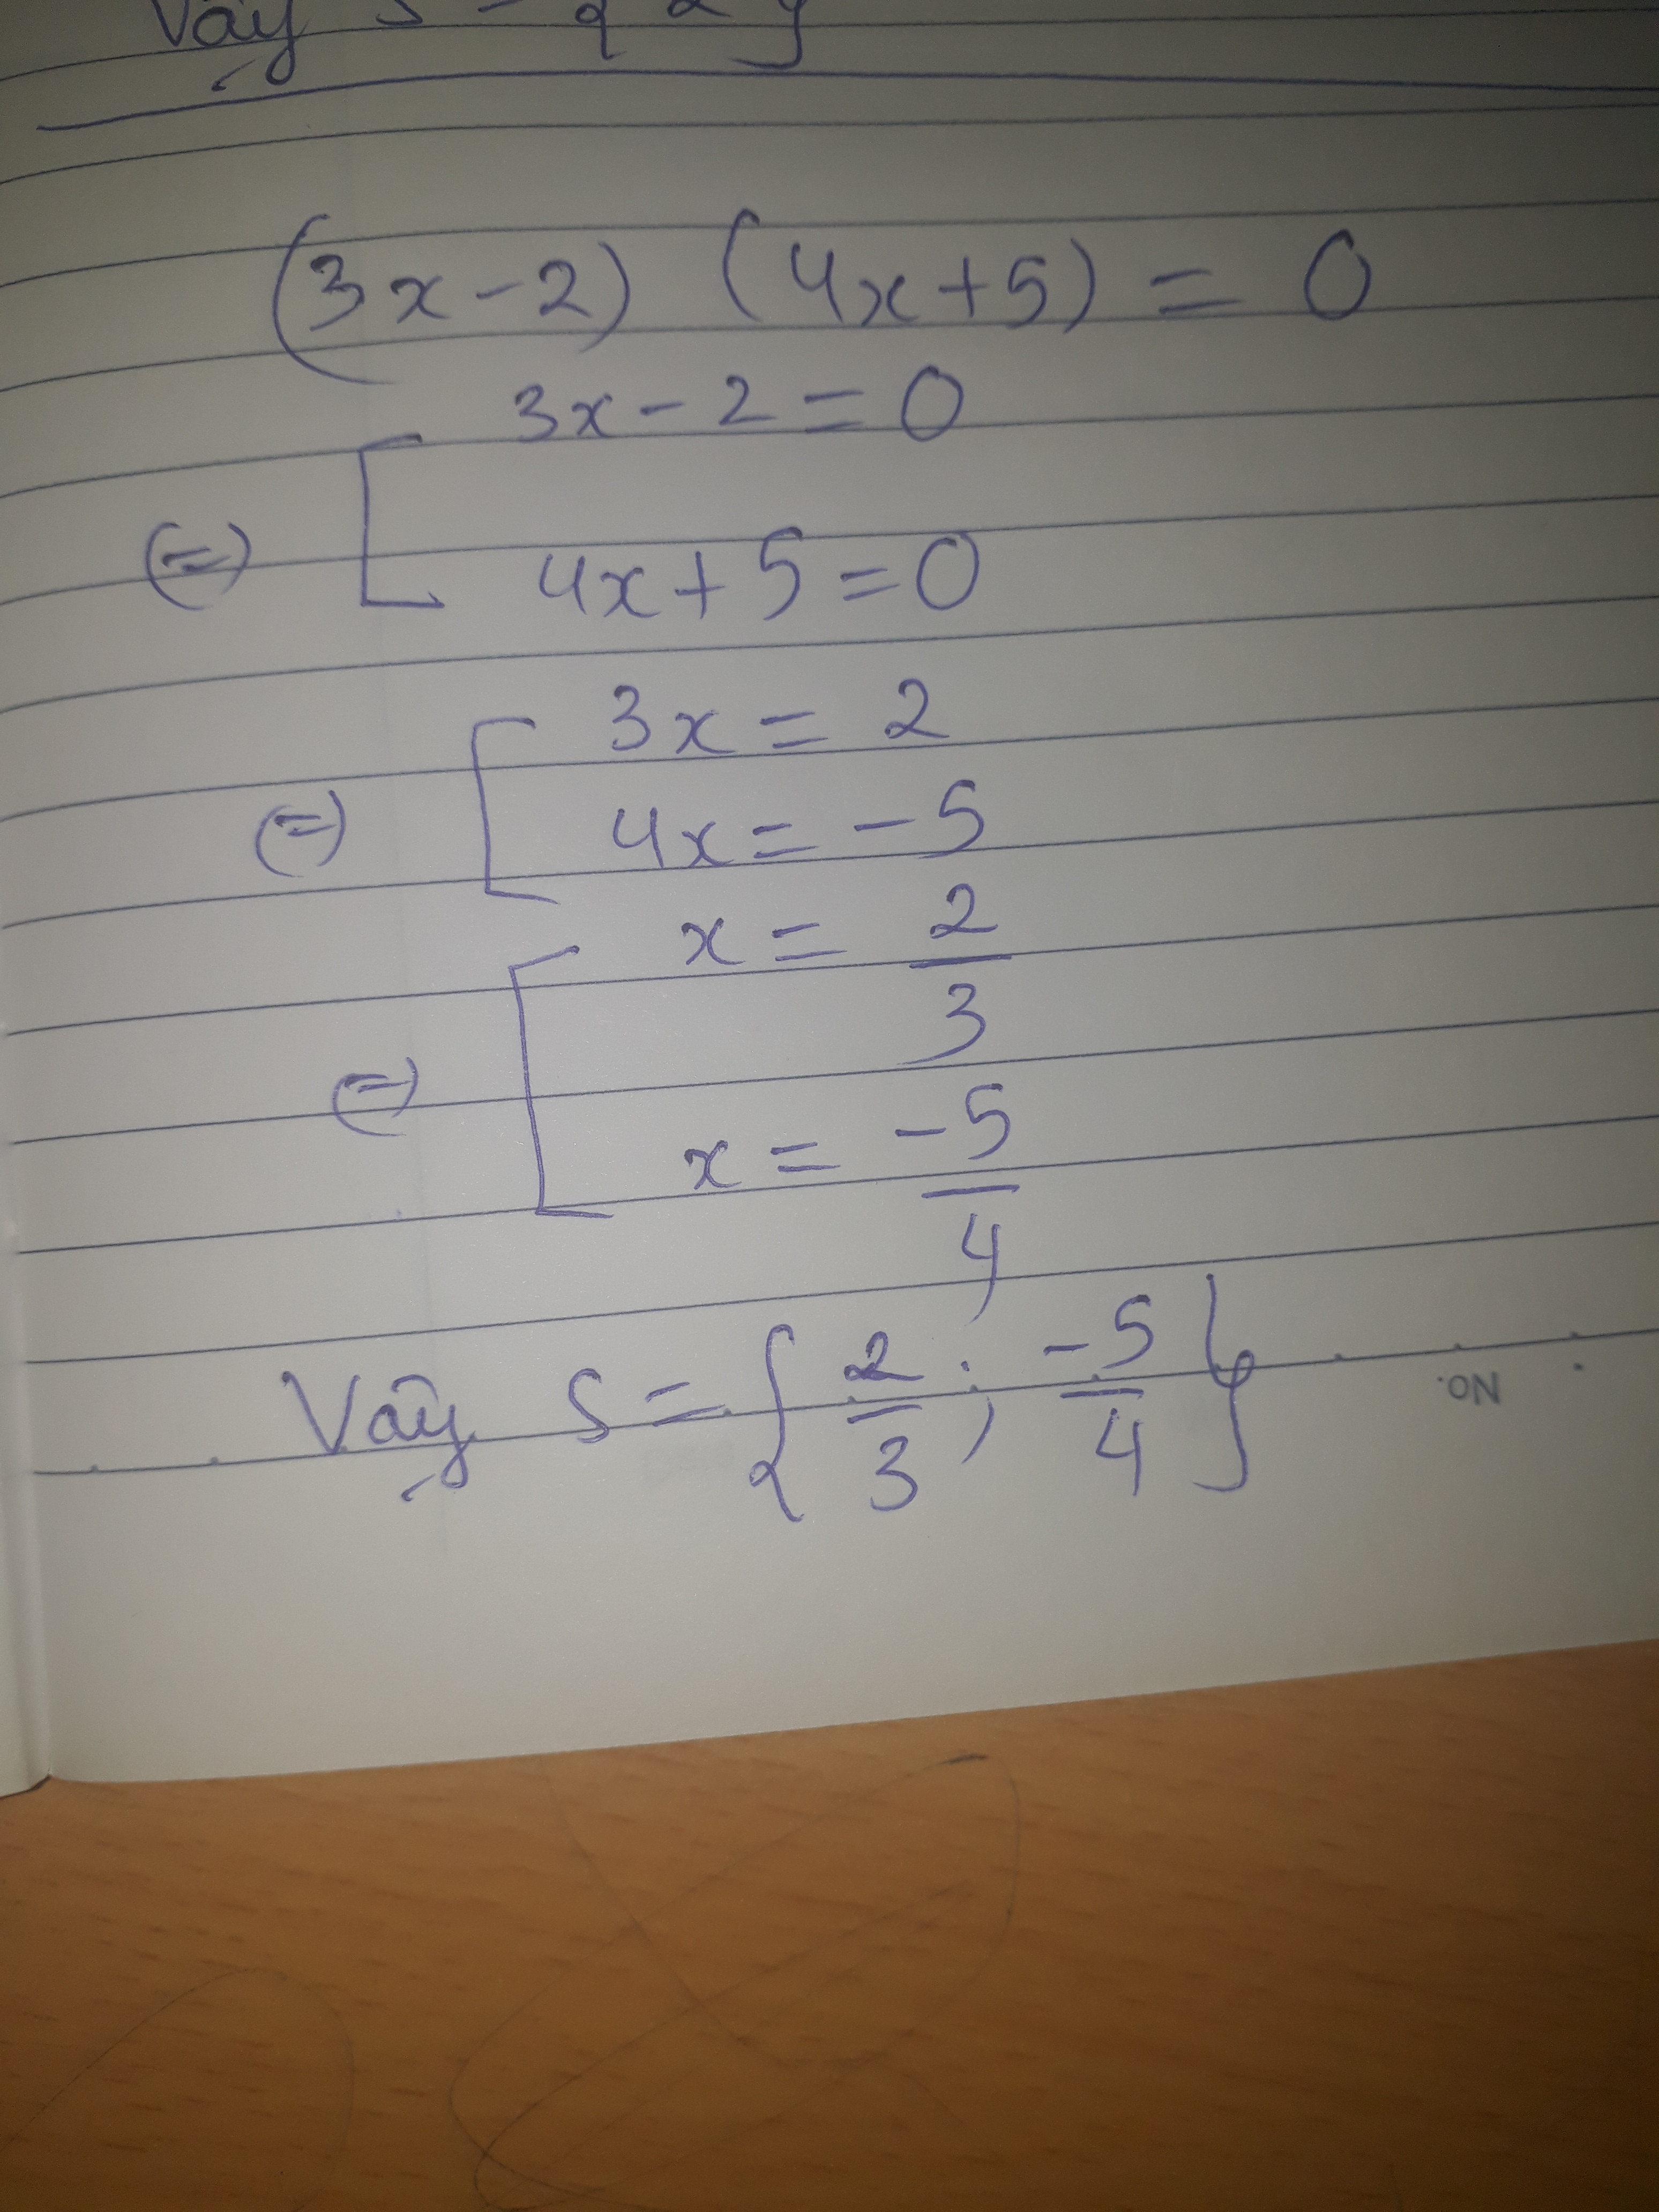 Vậy S = {2}
(3x-2) (4x+5) = 0
(=) [ 3x - 2 = 0
4x + 5 = 0
(=) [ 3x = 2
4x = -5
(=) [ x = 2/3
x = -5/4
Vậy S = {2/3; -5/4}
No.